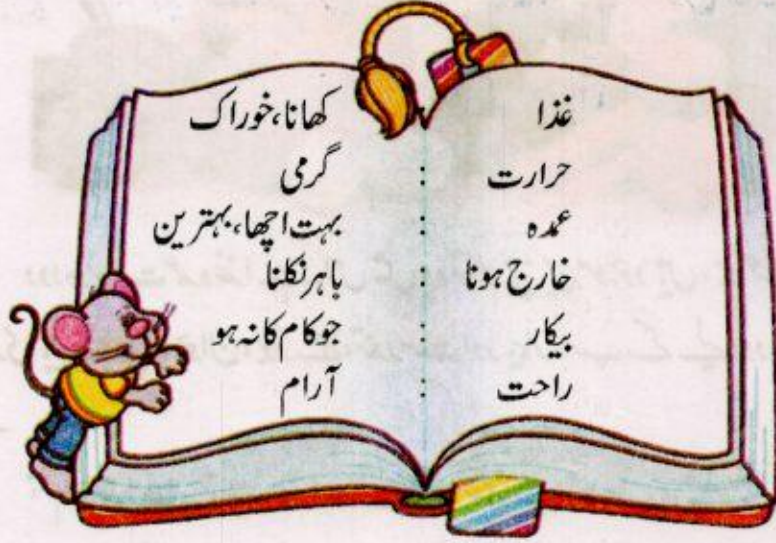 غذا : کھانا،خوراک
حرارت : گرمی
عمدہ : بہت اچھا،بہترین
خارج ہونا : باہر نکلنا
بیکار : جو کام کا نہ ہو
راحت : آرام